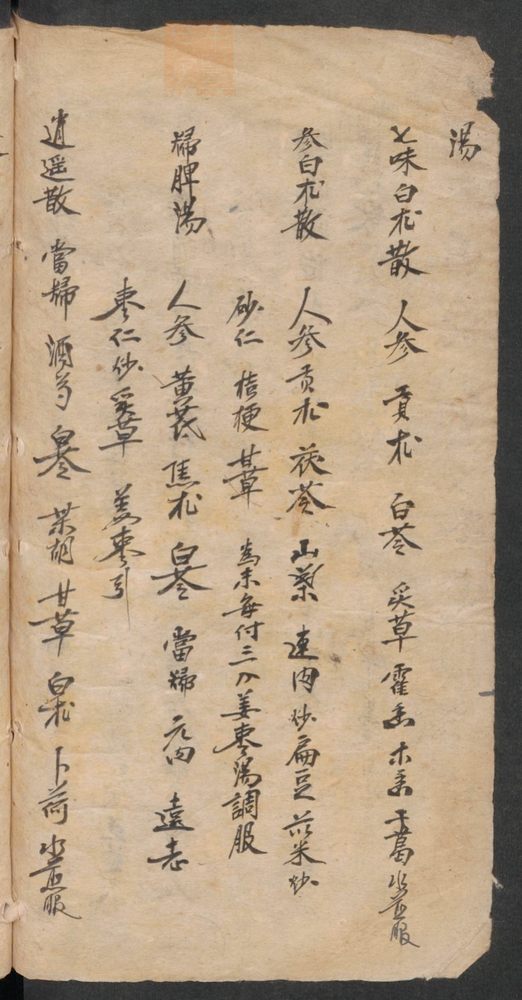 湯
七味白朮散 人參 貢朮 白苓 炙草 霍香 木香 干葛 水煎服
參白朮散 人參 貢朮 茯苓 山藥 連肉 炒扁豆 苡米炒
砂仁 桔梗 甘草 為末每付三刀姜棗湯調服
歸脾湯 人參 黃芪 焦朮 白苓 當歸 元肉 遠志
棗仁炒 炙草 姜棗引
逍遥散 當歸 酒芍 白苓 柴胡 甘草 白朮 卜荷 水煎服